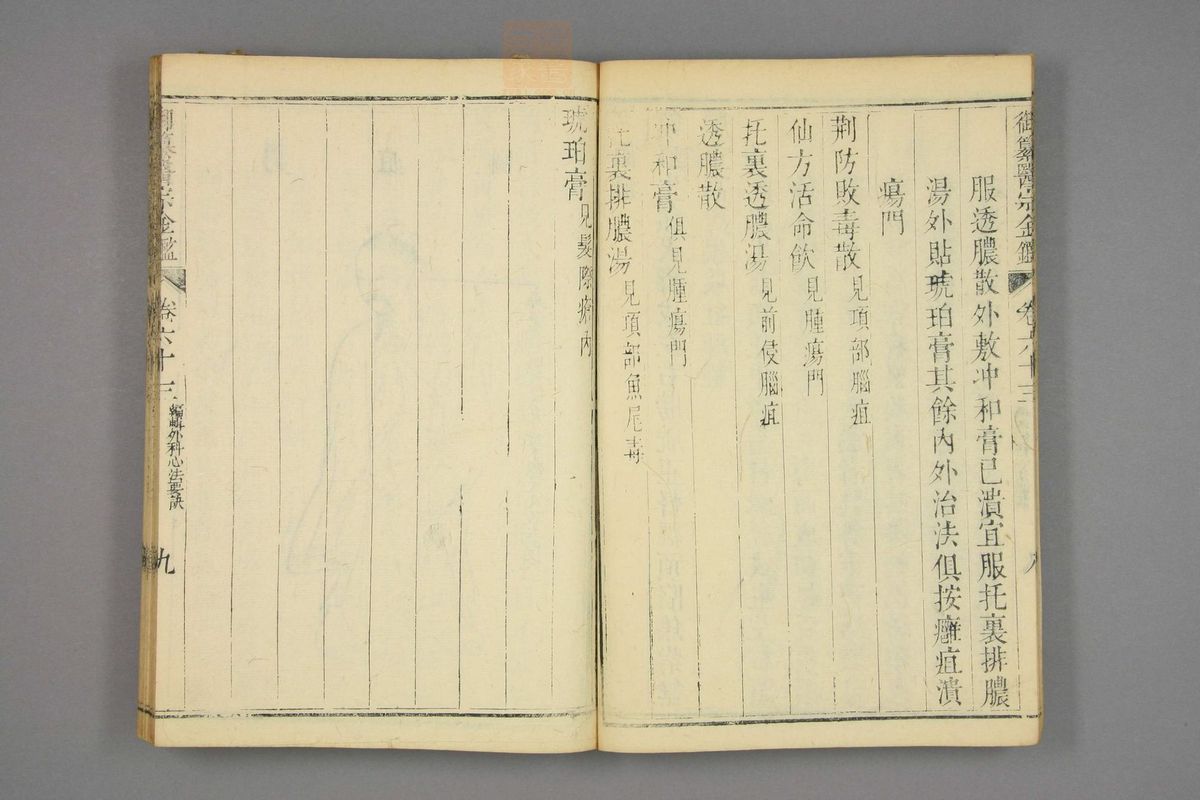 御纂醫宗金鑑 卷六十三 八
服透膿散外敷冲和膏已潰宜服托裏排膿
湯外貼琥珀膏其餘內外治法俱按癰疽潰
瘍門
荆防敗毒散見項部腦疽
仙方活命飲見腫瘍門
托裏透膿湯見前侵腦疽
透膿散
冲和膏俱見腫瘍門
托裏排膿湯見項部魚尾毒
琥珀膏見髮際瘡內
御纂醫宗金鑑 卷六十三 編輯外科心法要訣 九